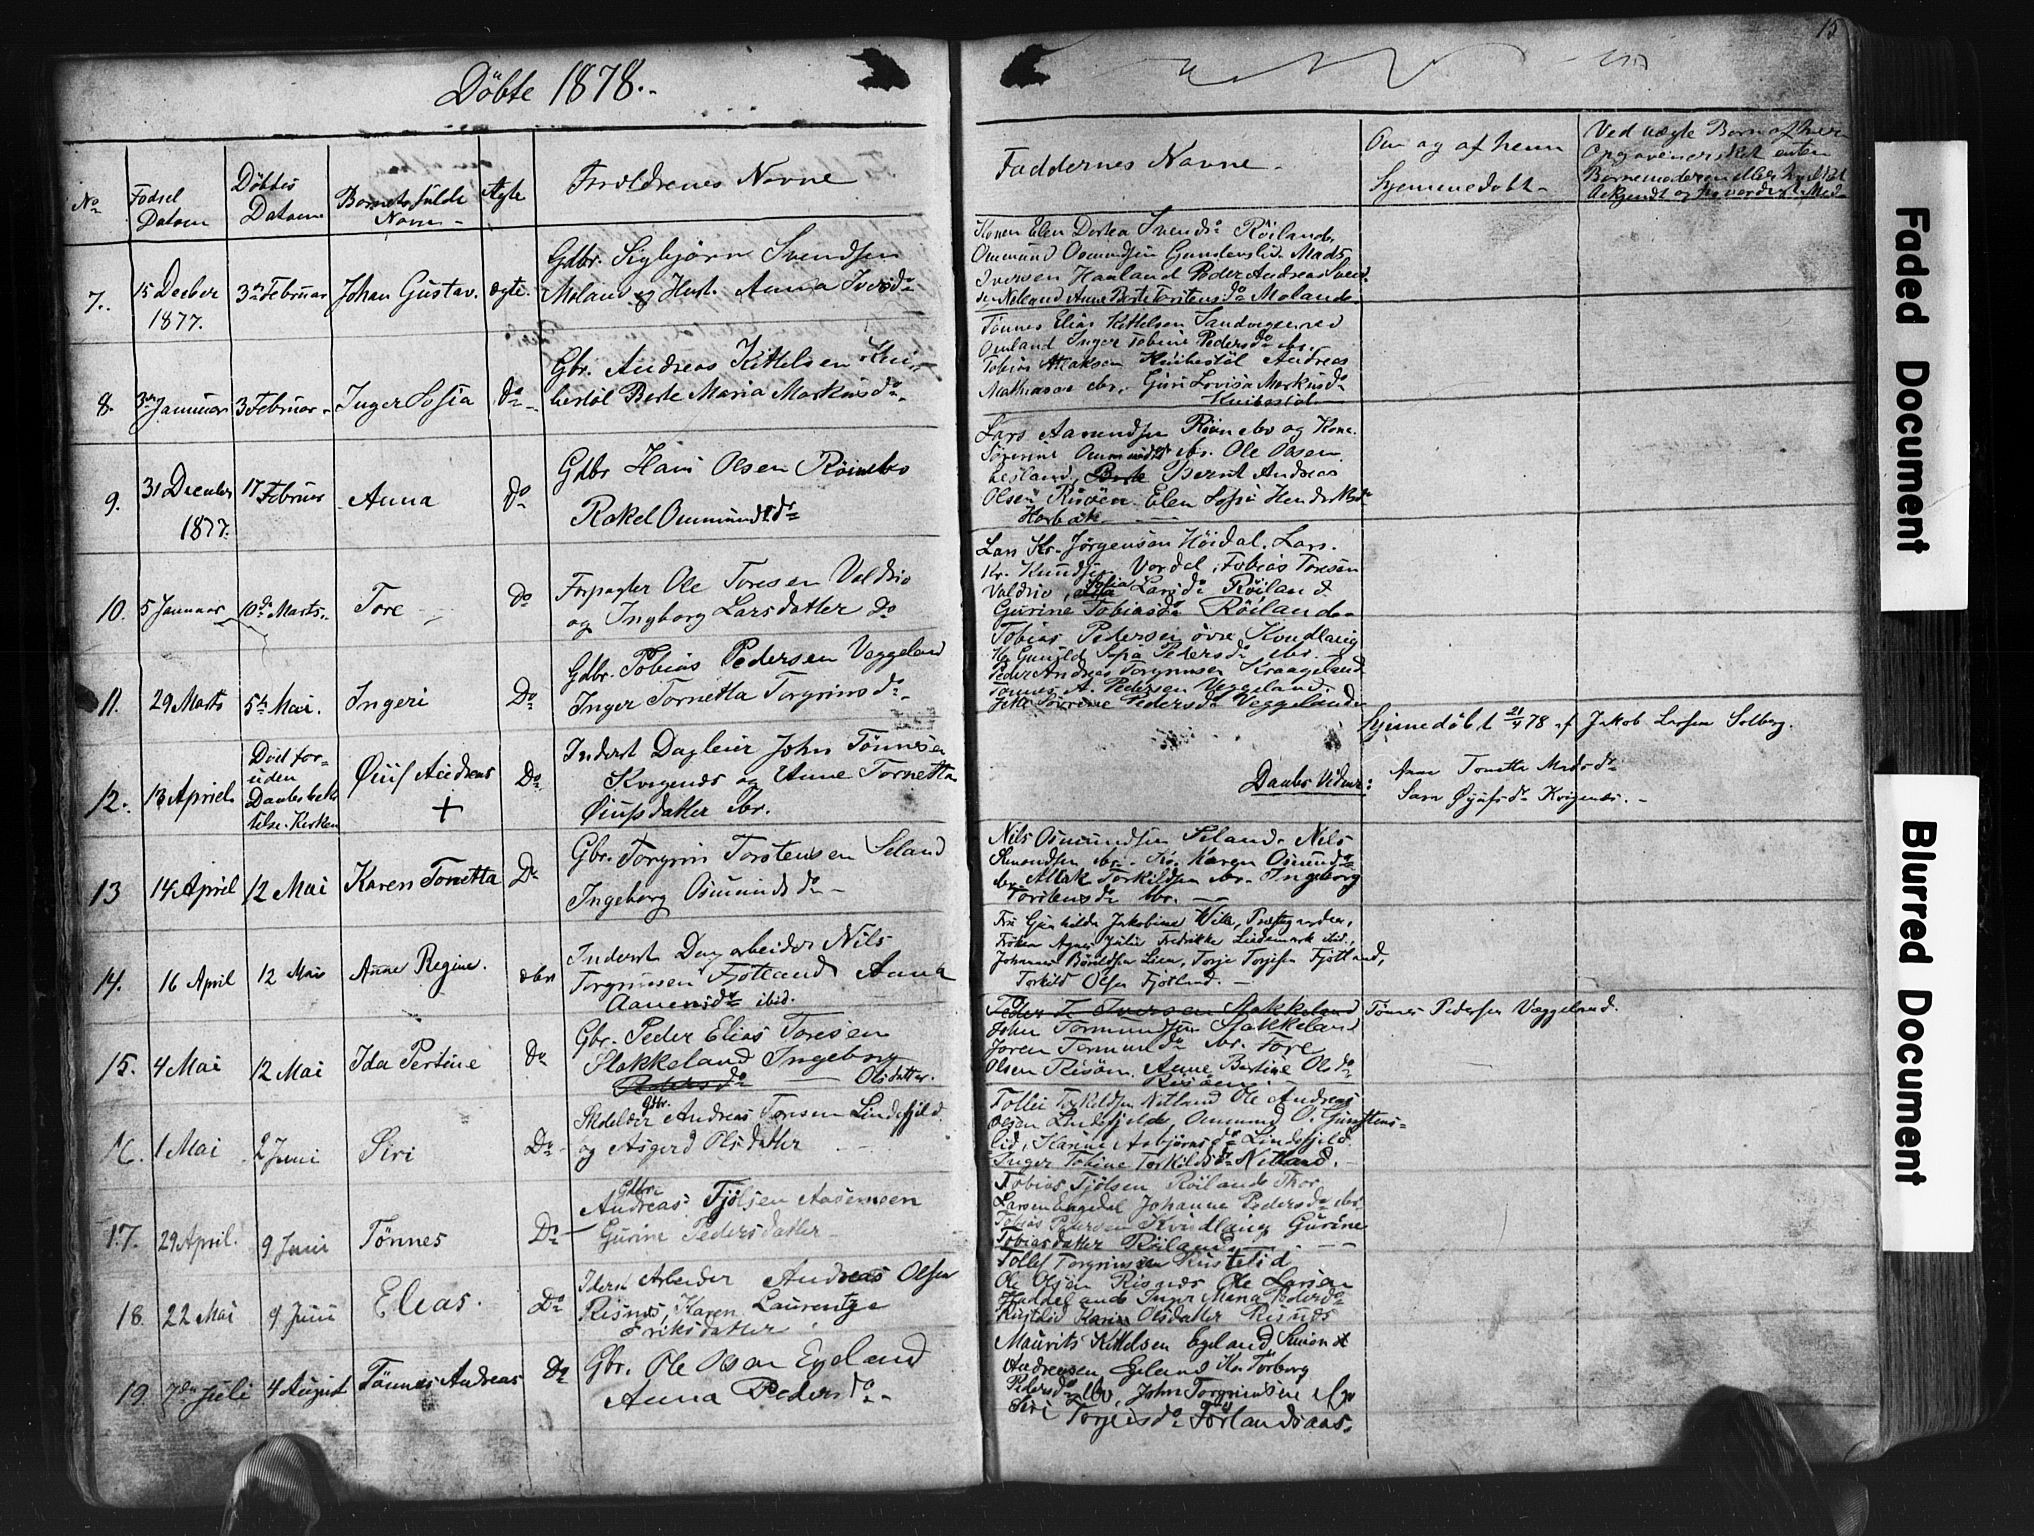 Döbte 1878.-
15
No
Födsel
Datum
Döbtes
Datum
Barnets fulde
Navn -
Ægte
Foreldrenes Navne
Faddernes Navne -
Om og af hvem
hjemmedöbt -
Ved uægte Børn
7. 15 Decber 1877. 3die Februar Johan Gustav. ægte.
Gdbr. Sigbjørn Svendsen
Moland og Hust. Anna Iversdr
Konen Elen Dortea Svendsdr Röilande,
Ommund Osmundsen Gunderslid Mads
Iversen Haaland Peder Andreas
Anne Berte Torstensdr Molande
8. 3die Januar 3 Februar Inger Sofia Do
Gbr. Andreas Kittelsen Knibe-
bestöl Berte Maria Markusdr.
Tönnes Elias Kittelsen Sandvigen ved
Omland Inger Tobine Pedersdr ibr.
Tobias Atlaksen Knibestöl Andreas
Mathiasen ibr. Guri Lovisa Markusdr
Knibestöl
9. 31 Decmber 1877. 17 Februar Anna Do
Gdbr Hans Olsen Röinebo
Rakel Ommundsdr
Lars Aanundsen Röinebo og Kone
Sörenine Ommundsdr ibr. Ole Olsen
Lesland, Berte Bernt Andreas
Olsen Risöen. Elen Sofie
10. 5 Januar 10de Marts. Tore Do
Forpagter Ole Toresen Valdrio
og Ingborg Larsdatter Do
Lars Kr. Jörgensen Höidal. Lars
Kr. Knudsen Vordal, Tobias Toresen
Valdrio, Sofia Larsdr Röiland
Gurine Tobiasdr Röilande
11. 29 Marts 5te Mai. Ingeri Do
Gdbr. Tobias Pedersen Veggeland
Inger Tornetta Torgrimsdr.
Tobias Pedersen övre Kvidlang
Gunild Sofia Pedersdr ibr.
Peder Andreas Torgrimsen Kraageland
Tönnes A. Pedersen Veggeland.
Sörene Pedersdr Veggelande
12. 13 Apriel. Död for-
uden
Daabs bekræf-
telse. Kirken
Øiuf Andreas
+
Do
Inderst Dagleier John Tönnesen
Kvigenes og Anne Tornetta
Øiufsdatter ibr.
Hjemmedöbt 21/4 78 af Jakob Larsen Solberg.
Daabs Vidner: Anne Tonette Madsdr
Sara Øyufsdr Kvigenes. -
13 14 April 12 Mai Karen Tonetta Do
Gbr. Torgrim Torstensen Seland
Ingeborg Osmundsdr -
Nils Osmundsen Seland. Nils
Simondsen ibr. Ko. Karen Osmundsdr
ibr. Atlak Torkildsen ibr. Ingeborg
Torstensdr ibr. -
14. 16 April 12 Mai Anne Regine. Do
Inderst Dagarbeider Nils
Torgrimsen Fjotland Anna
Aanensdr ibid.
Fru Gunhilde Jakobine Wille, Præstegaarden,
Fröken Agnes Julie Fredrikke Lindemark ibid.,
Johannes Bårdsen Lien, Torje Torjesen Fjotland,
Torkild Olsen Fjotland. -
15. 4 Mai 12 Mai Ida Pertine Do
Gbr. Peder Elias Toresen
Stakkeland Ingeborg
Pedersdr - Olsdatter.
Peder T. Iversen Stakkeland Tönnes Pedersen Væggeland.
John Tormundsen Stakkeland
Joren Tormunsdr ibr. Tore
Olsen Risöen. Anne Bertine Olsdr
Risöen.
16. 1 Mai 2 Juni Siri Do
Skoleholder Gdbr. Andreas Tonsen Lindefjeld.
og Asgerd Olsdatter
Tollei Torkeldsen Netland Ole Andreas
Olsen Lindefjeld, Ommund O. Gunstens-
lid, Karine Asbjørnsdr Lindefjeld.
Inger Tobine Torkildsdr Netland. -
17. 29 April. 9 Juni Tönnes Do
Gdbr. Andreas Fjölsen Aasemoen
Gurine Pedersdatter
Tobias Fjölsen Röilande Thor
Larsen Johanne Pedersdr ibr
Tobias Pedersen Kvidlang Gurine
Tobiasdatter Röiland
18. 22 Mai 9 Juni Elias. Do
Iderst Arbeider Andreas Olsen
Risnes, Karen Laurentze
Eriksdatter
Tollef Torgrimsen Kustelid
Ole Olsen Risnes Ole Larsen
Haddeland Inger Maria Pedersdr
Kustelid Karen Olsdatter Risnes
19. 7de Juli 4 August Tönnes Andreas Do
Gbr. Ole Olsen Egeland
Anna Pedersdr -
Maurits Kittelsen Egeland, Simon
Andreassen Egeland Ko. Torborg
Pedersdr ibr, John Torgrimsen
Siri Torjusdr Förlandsaas.
Faded Document
Blurred Document